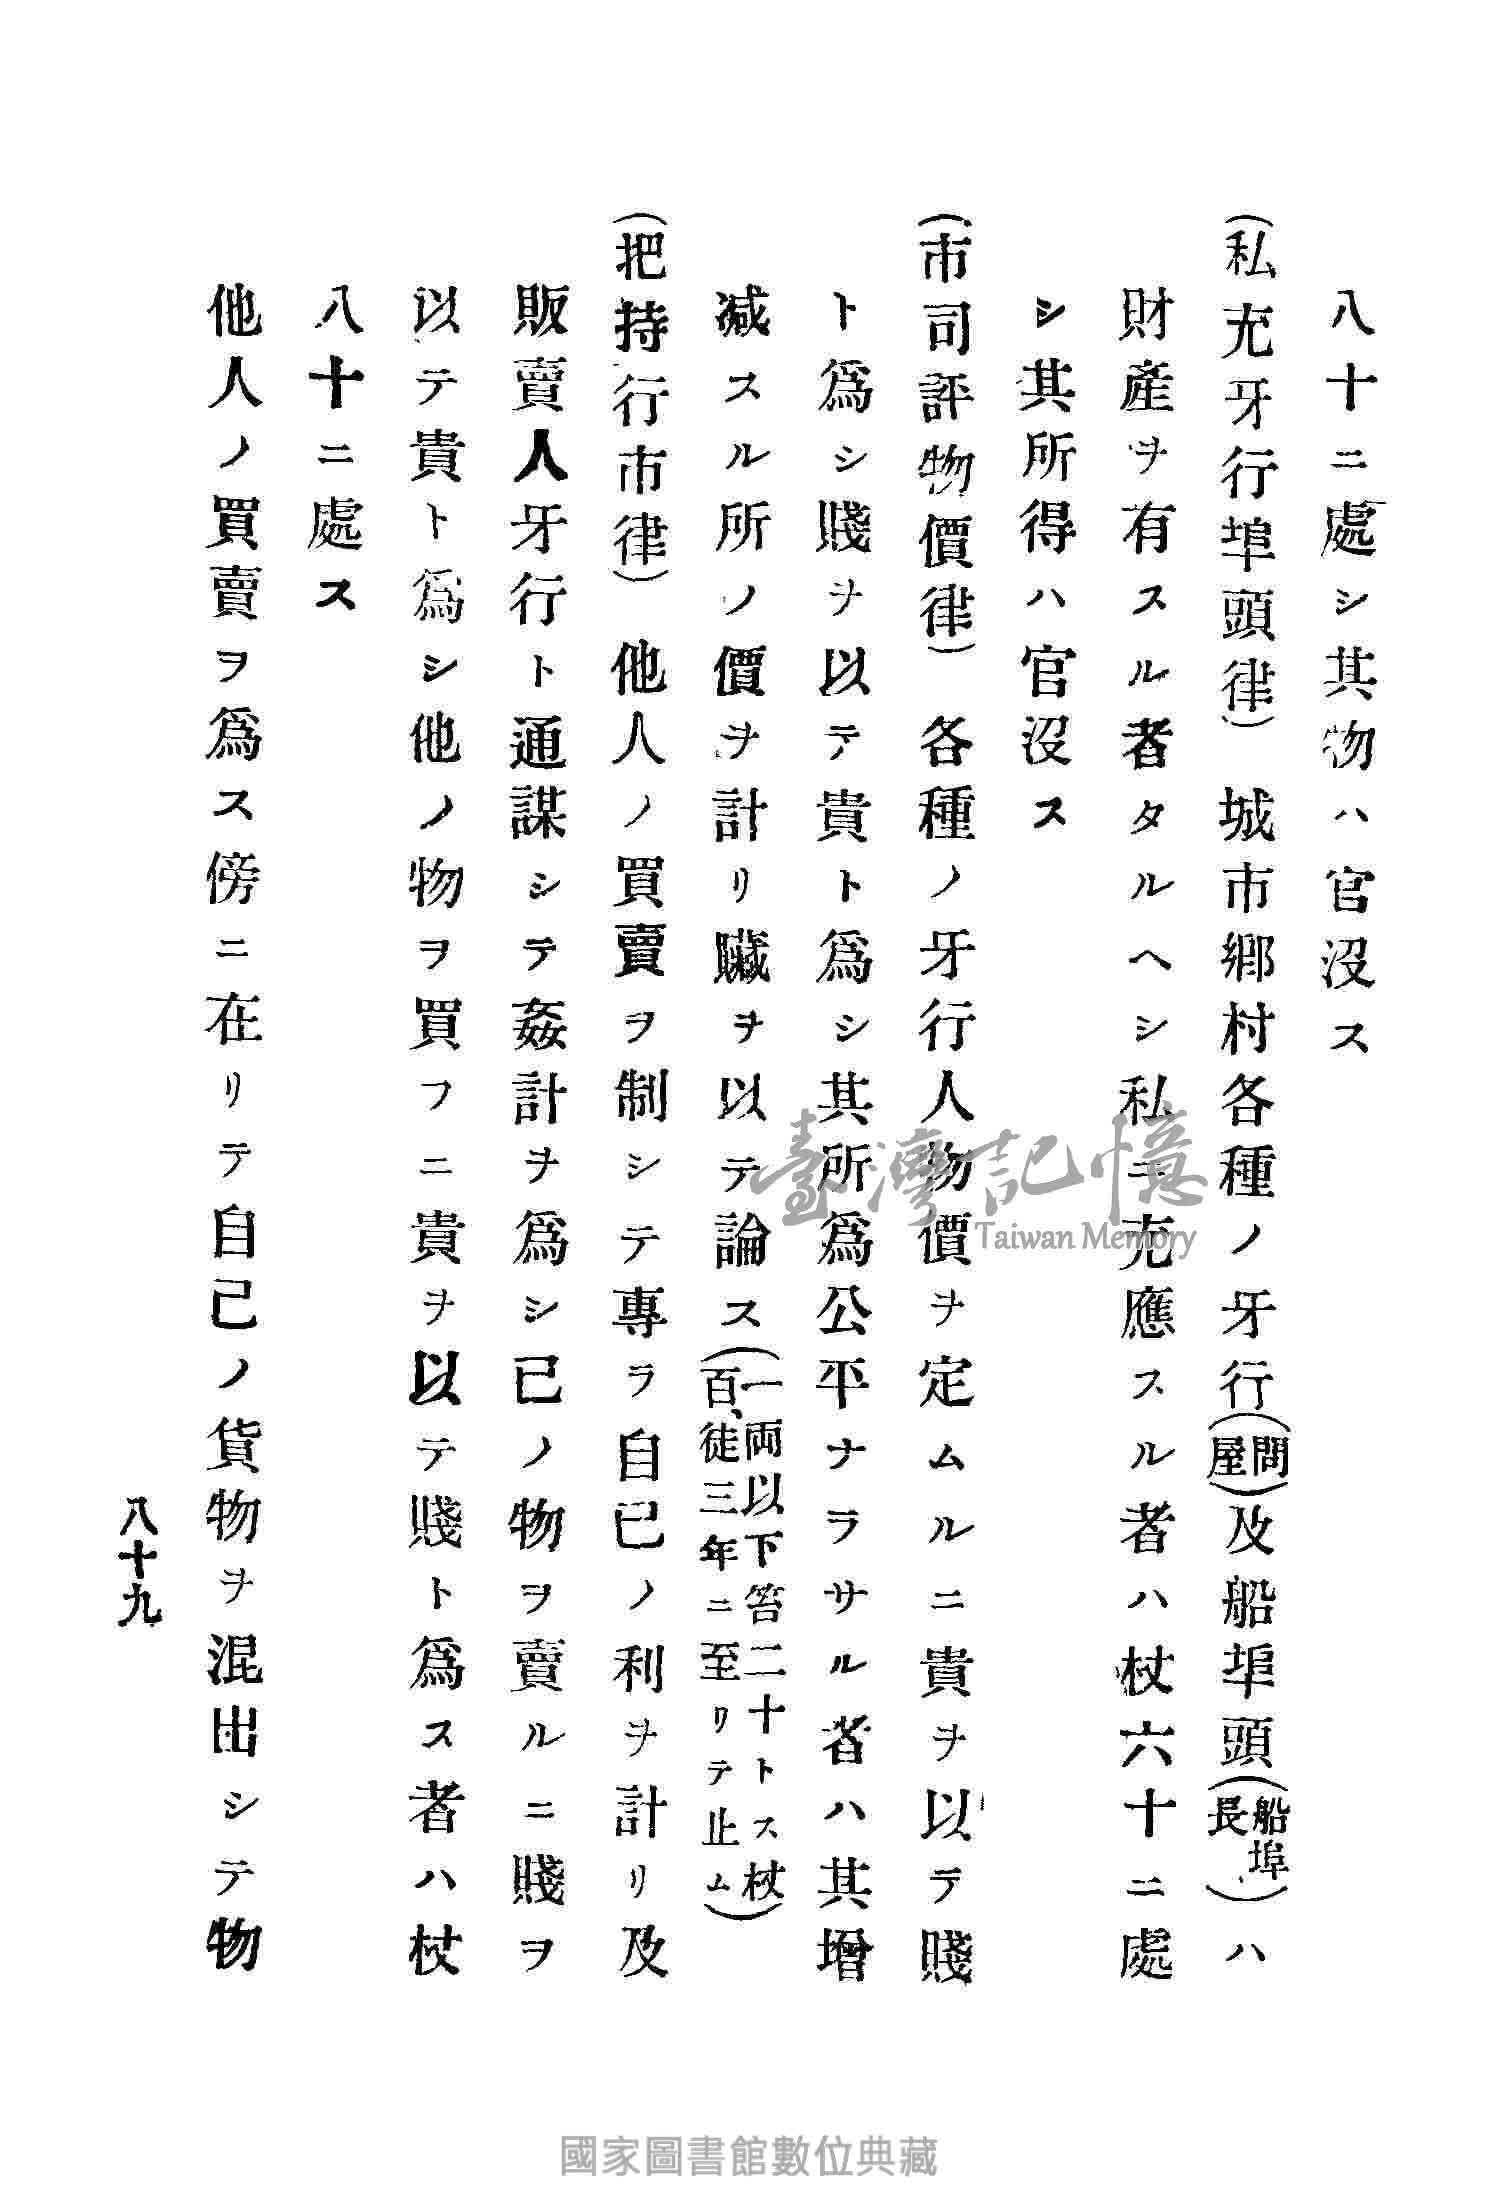 八十ニ處シ其物ハ官沒ス
(私充牙行埠頭律) 城市鄉村各種ノ牙行(問屋)及船埠頭(船埠長)ハ
財產ヲ有スル者タルヘシ私ニ充應スル者ハ杖六十ニ處
シ其所得ハ官沒ス
(市司評物價律) 各種ノ牙行人物價ヲ定ムルニ貴ヲ以テ賤
ト爲シ賤ヲ以テ貴ト爲シ其所爲公平ナラサル者ハ其增
減スル所ノ價ヲ計リ贓ヲ以テ論ス(一兩以下笞二十トス杖百、徒三年ニ至リテ止ム)
(把持行市律) 他人ノ買賣ヲ制シテ專ラ自己ノ利ヲ計リ及
販賣人牙行ト通謀シテ姦計ヲ爲シ己ノ物ヲ賣ルニ賤ヲ
以テ貴ト爲シ他ノ物ヲ買フニ貴ヲ以テ賤ト爲ス者ハ杖
八十ニ處ス
他人ノ買賣ヲ爲ス傍ニ在リテ自己ノ貨物ヲ混出シテ物
八十九
臺灣記憶
Taiwan Memory
國家圖書館數位典藏